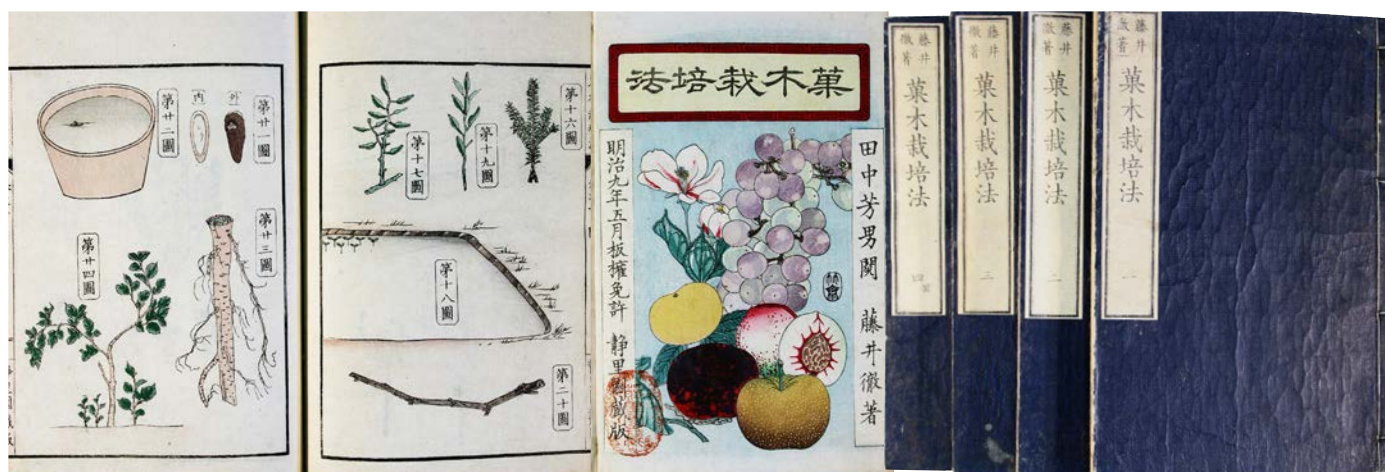 第廿一圖
外
内
第廿二圖
第廿三圖
第廿四圖
第十六圖
第十九圖
第十七圖
第十八圖
第二十圖
菓木栽培法
田中芳男閱
藤井徹著
明治九年五月板權免許
藤井
徹著
菓木栽培法
一
藤井
徹著
菓木栽培法
二
藤井
徹著
菓木栽培法
三
藤井
徹著
菓木栽培法
四